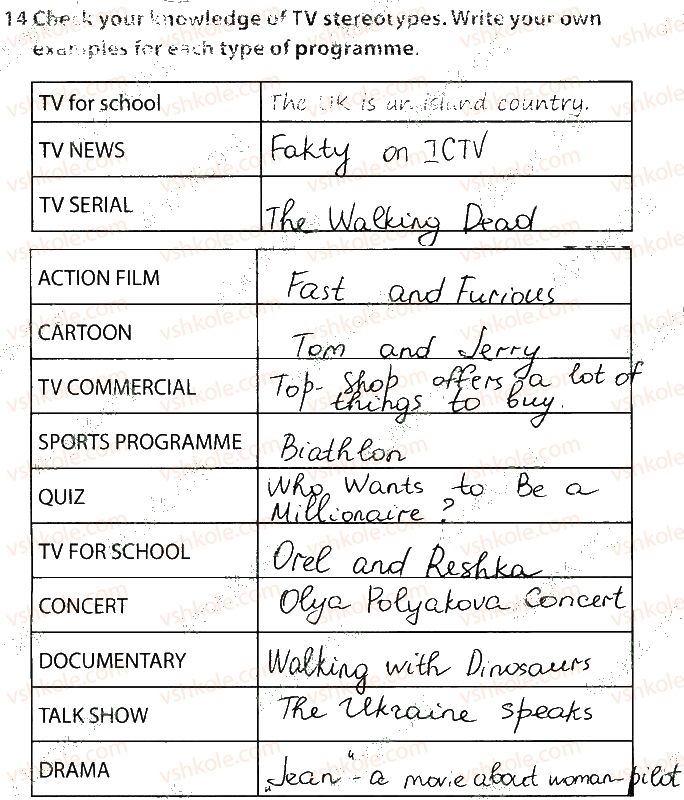 14 Check your knowledge of TV stereotypes. Write your own
examples for each type of programme.
TV for school The UK is an island country.
TV NEWS Fakty on ICTV
TV SERIAL The Walking Dead
ACTION FILM Fast and Furious
CARTOON Tom and Jerry
TV COMMERCIAL Top-shop offers a lot of
things to buy.
SPORTS PROGRAMME Biathlon
QUIZ Who Wants to Be a
Millionaire?
TV FOR SCHOOL Orel and Reshka
CONCERT Olya Polyakova Concert
DOCUMENTARY Walking with Dinosaurs
TALK SHOW The Ukraine speaks
DRAMA „Jean" - a movie about woman-pilot
vshkole.com